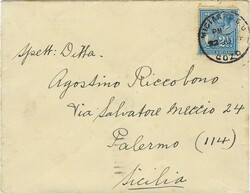 Spett: Ditta.
Agostino Riccobono
Via Salvatore Meccio 24
Palermo (114)
Sicilia
GOZO